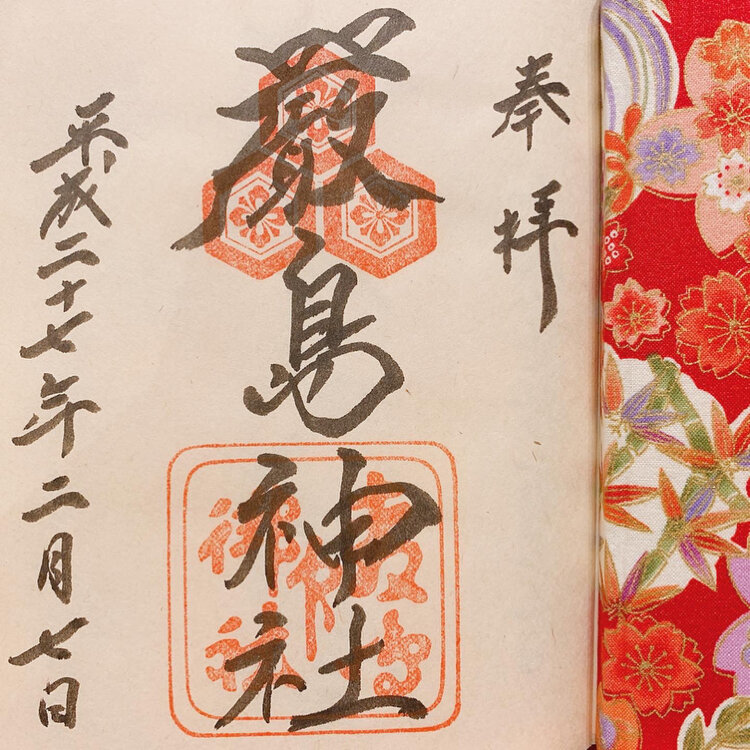 奉拝
厳島神社
平成二十七年二月七日